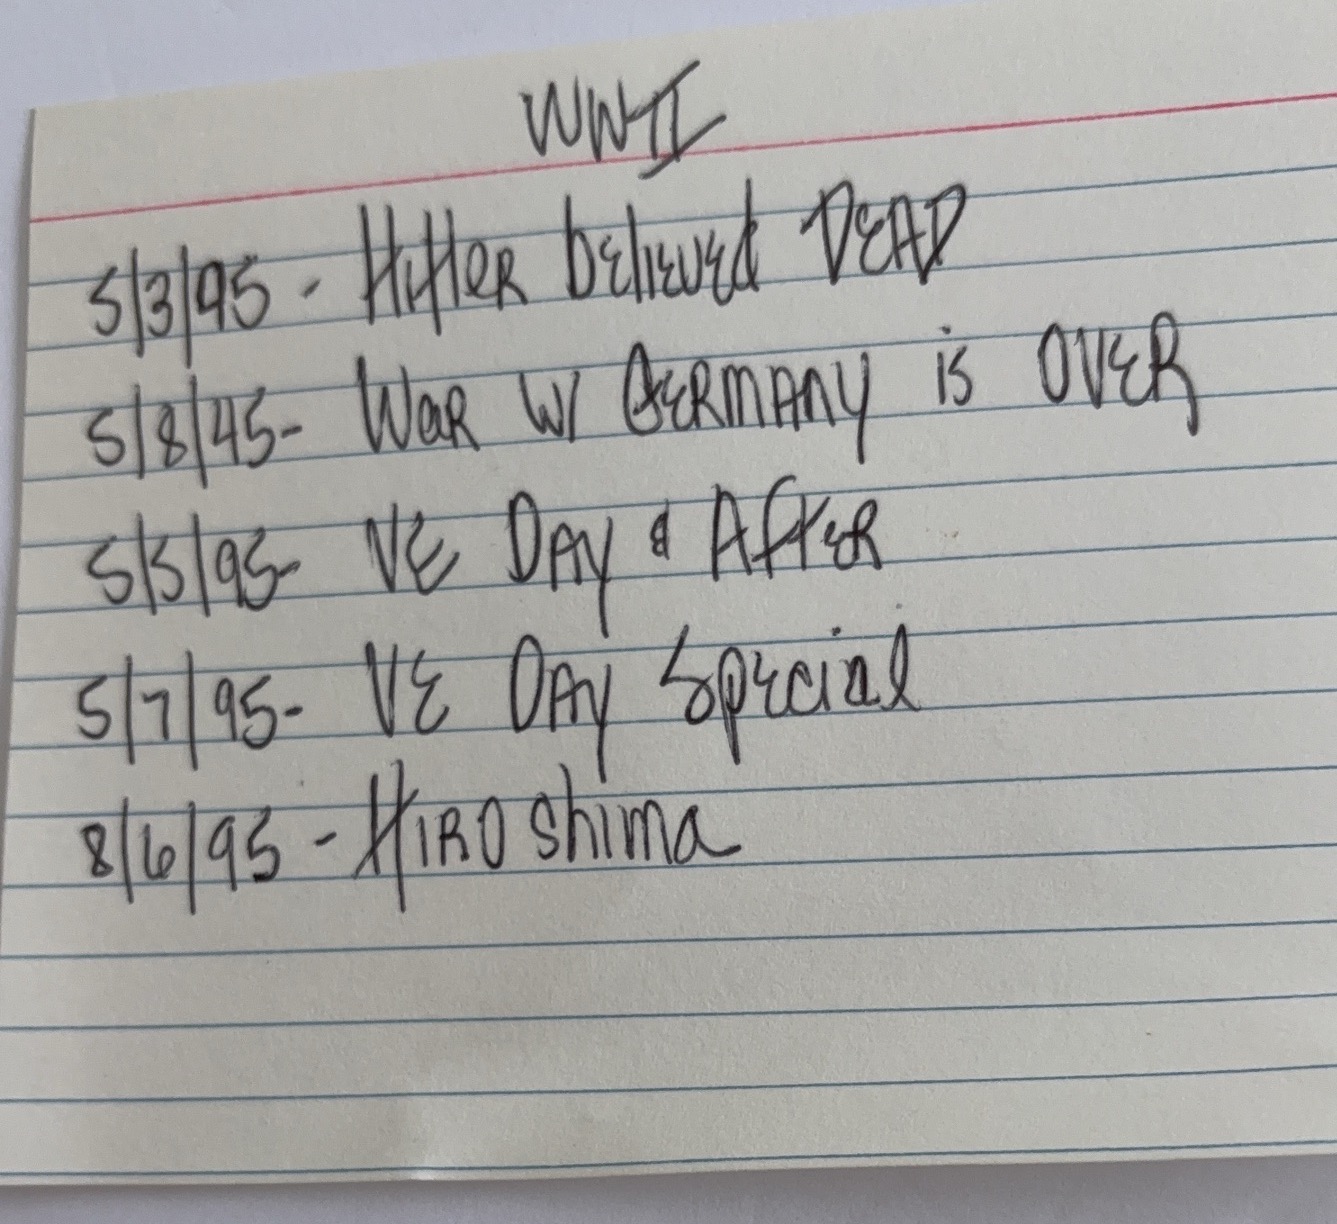 WWII
5/3/95 - Hitler believed DEAD
5/8/45- War w/ GERMANY is OVER
5/5/95- VE DAY & AFTER
5/7/95- VE DAY Special
8/6/95 - HIROshima